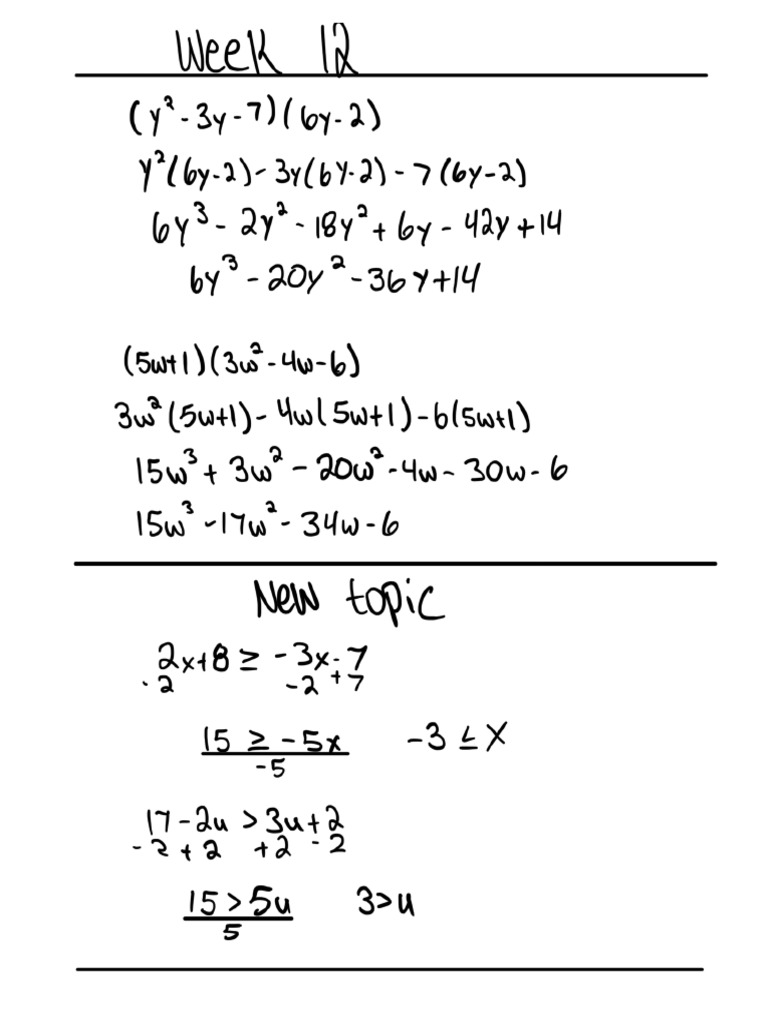 Week 12
(y² - 3y - 7)(6y - 2)
y²(6y-2) - 3y(6y-2) - 7(6y-2)
6y³ - 2y² - 18y² + 6y - 42y + 14
6y³ - 20y² - 36y + 14
(5w+1)(3w² - 4w - 6)
3w²(5w+1) - 4w(5w+1) - 6(5w+1)
15w³ + 3w² - 20w² - 4w - 30w - 6
15w³ - 17w² - 34w - 6
New topic
2x+8 ≥ -3x-7
-2 -2 +7
15 ≥ -5x -3 ≤ x
-5
17 - 2u > 3u + 2
-2 +2 +2 -2
15 > 5u 3 > u
5